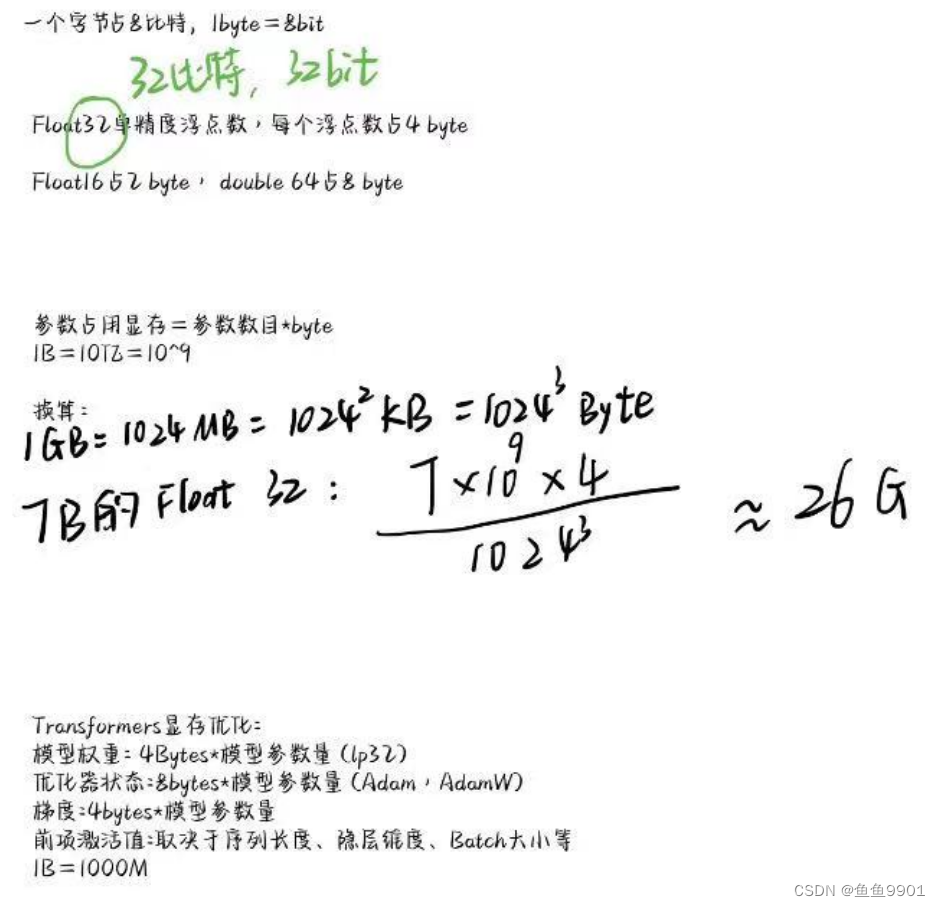 一个字节占8比特，1byte=8bit
32比特，32bit
Float32单精度浮点数，每个浮点数占4 byte
Float16占2 byte，double 64占8 byte
参数占用显存=参数数目*byte
1B=10亿=10^9
换算：
1GB=1024MB=1024²KB=1024³Byte
7B的Float 32：7×10⁹×4/1024³≈26G
Transformers显存优化：
模型权重：4Bytes*模型参数量（lp32）
优化器状态：8bytes*模型参数量（Adam，AdamW）
梯度：4bytes*模型参数量
前项激活值：取决于序列长度、隐层维度、Batch大小等
1B=1000M
CSDN @鱼鱼9901